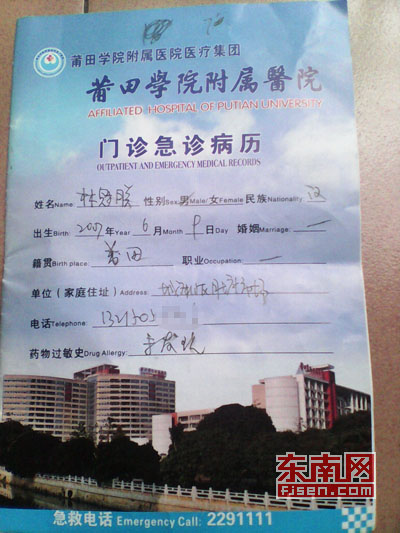 莆田学院附属医院医疗集团
莆田學院附属醫院
AFFILIATED HOSPITAL OF PUTIAN UNIVERSITY
门诊急诊病历
OUTPATIENT AND EMERGENCY MEDICAL RECORDS
姓名Name: 性别Sex:男Male/女Female 民族Nationality: 汉
出生Birth 2007 年Year 6 月Month 9 日Day 婚姻Marriage: 一
籍贯Birth place: 莆田 职业Occupation: 一
单位(家庭住址)Address:
电话Telephone: 1321505
药物过敏史Drug Allergy:
东南网
FJSEN.COM
急救电话 Emergency Call: 2291111